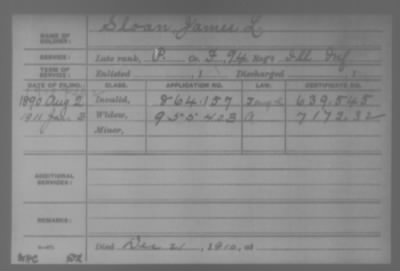 NAME OF SOLDIER: Sloan James L
SERVICE: Late rank, P. Co. F, 94 Reg't Ill Inf
TERM OF SERVICE: Enlisted , 1 Discharged , 1
DATE OF FILING. CLASS. APPLICATION NO. LAW. CERTIFICATE NO.
1890 Aug 2 Invalid, 864.157 639.545
1911 Jan 3 Widow, 955403 717232
Minor,
ADDITIONAL SERVICES:
REMARKS:
Died Dec 21, 1910, at